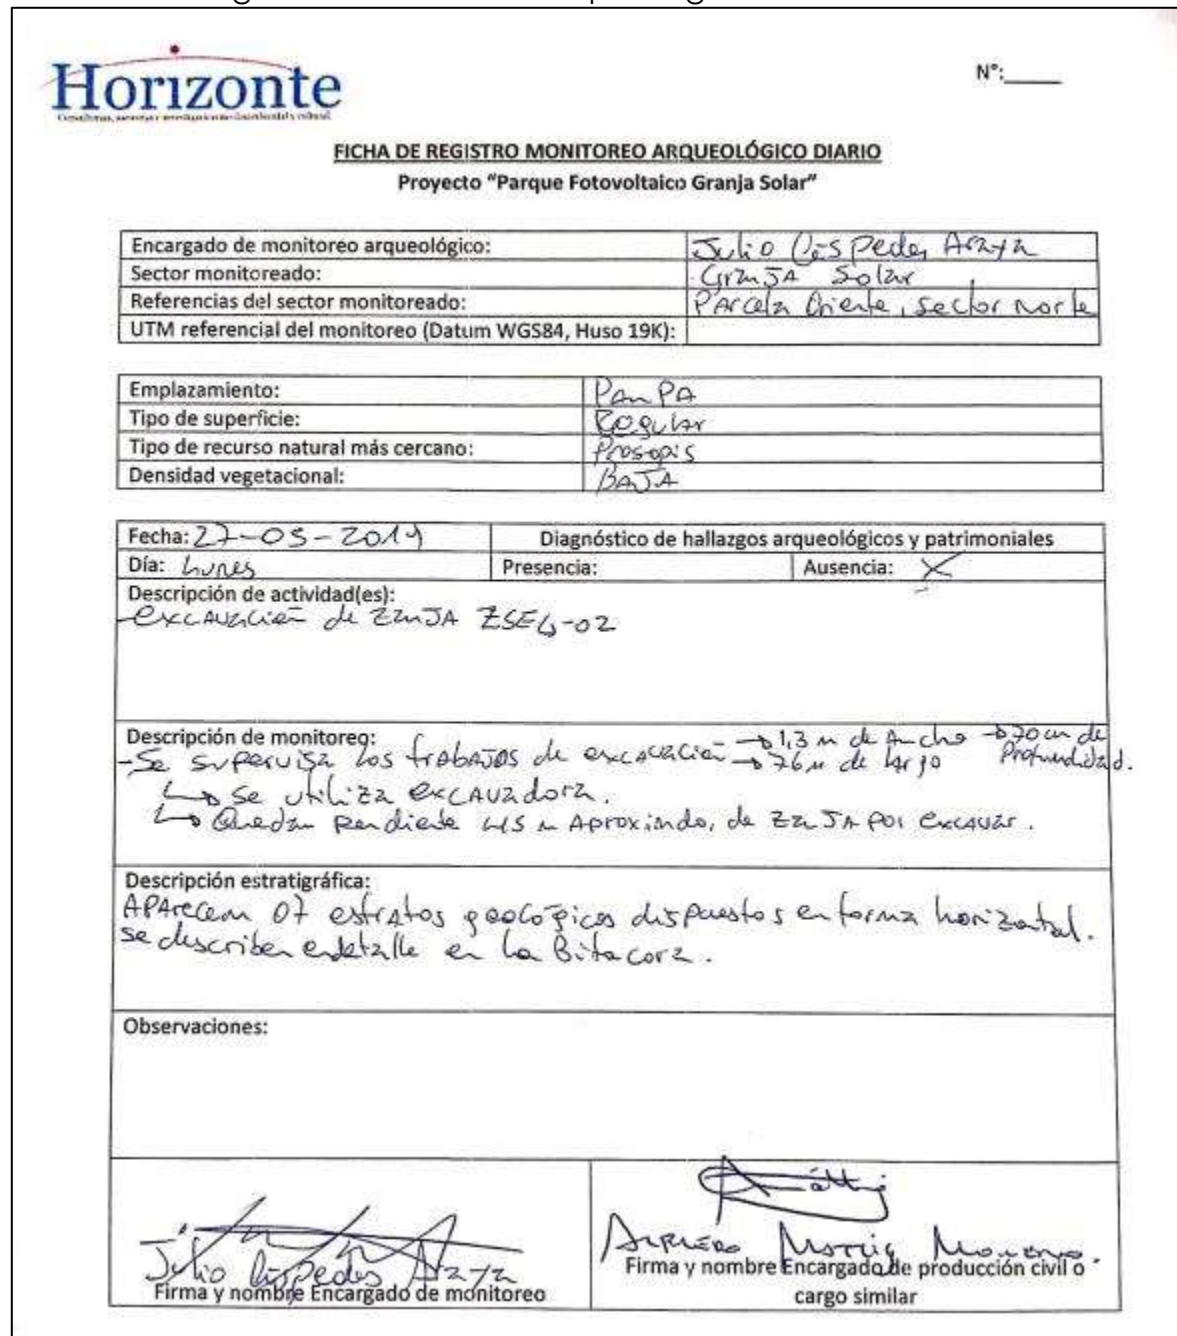 Horizonte
N°:_____
FICHA DE REGISTRO MONITOREO ARQUEOLÓGICO DIARIO
Proyecto "Parque Fotovoltaico Granja Solar"
Encargado de monitoreo arqueológico: Julio Céspedes Araya
Sector monitoreado: Granja Solar
Referencias del sector monitoreado: Parcela Oriente, sector norte
UTM referencial del monitoreo (Datum WGS84, Huso 19K):
Emplazamiento: Pampa
Tipo de superficie: Regular
Tipo de recurso natural más cercano: Prosopis
Densidad vegetacional: BAJA
Fecha: 27-05-2019 Diagnóstico de hallazgos arqueológicos y patrimoniales
Día: Lunes Presencia: Ausencia: X
Descripción de actividad(es):
-excavación de zanja
Descripción de monitoreo:
-Se supervisa los trabajos de excavación → 1,3 m de Ancho → 70 cm de Profundidad.
→ 76 m de largo
↳ se utiliza excavadora.
↳ Quedan pendiente m Aproximado, de zanja por excavar.
Descripción estratigráfica:
Aparecen 07 estratos geológicos dispuestos en forma horizontal.
se describen en detalle en la Bitacora.
Observaciones:
Julio Céspedes Araya
Firma y nombre Encargado de monitoreo
Firma y nombre Encargado de producción civil o
cargo similar